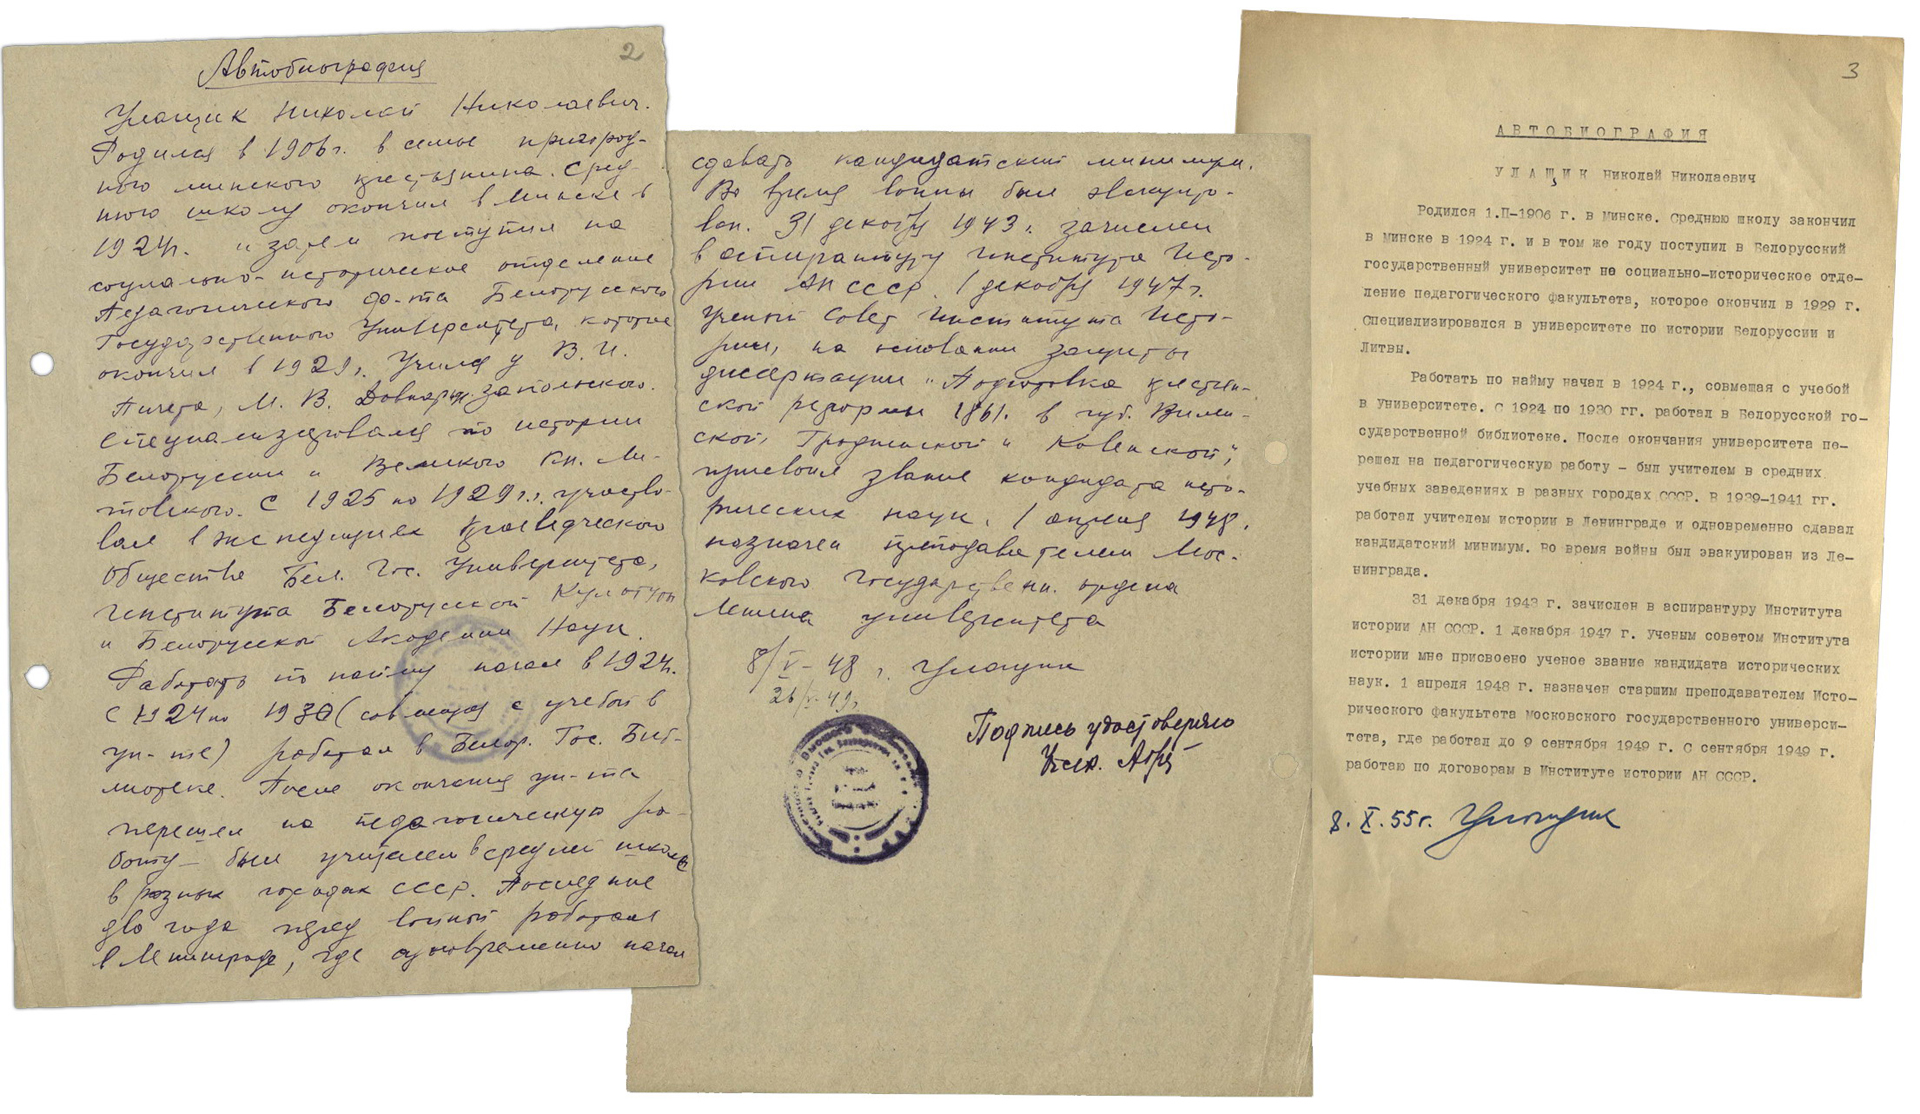 2
Автобиография
Улащик Николай Николаевич.
Родился в 1906 г. в семье пригород-
ного минского крестьянина. Сред-
нюю школу окончил в Минске в
1924 г. и затем поступил на
социально-историческое отделение
Педагогического фа-та Белорусского
Государственного Университета, которое
окончил в 1929 г. Учился у В. И.
Пичета, М. В. Довнар-Запольского.
Специализировался по истории
Белоруссии и Великого Кн. Ли-
товского. С 1925 по 1929 г.г. участво-
вал в экспедициях Краеведческого
Общества Бел. Гос. Университета,
Института Белорусской Культуры
и Белорусской Академии Наук.
Работать по найму начал в 1924 г.
С 1924 по 1930 (совмещая с учебой в
ун-те) работал в Белор. Гос. Биб-
лиотеке. После окончания ун-та
перешел на педагогическую ра-
боту — был учителем в средней школе
в разных городах СССР. Последние
два года перед войной работал
в Ленинграде, где одновременно начал
сдавать кандидатский минимум.
Во время войны был эвакуиро-
ван. 31 декабря 1943 г. зачислен
в аспирантуру Института Исто-
рии АН СССР. 1 декабря 1947 г.
Ученый Совет Института Исто-
рии, на основании защиты
диссертации "Подготовка крестьян-
ской реформы 1861. в губ. Вилен-
ской, Гродненской и Ковенской",
присвоил звание кандидата исто-
рических наук. 1 апреля 1948.
назначен преподавателем Мос-
ковского Государственн. ордена
Ленина университета
8/V-48 г. Улащик
26/V-49 г.
Подпись удостоверяю
3
АВТОБИОГРАФИЯ
УЛАЩИК Николай Николаевич
Родился 1.II-1906 г. в Минске. Среднюю школу закончил
в Минске в 1924 г. и в том же году поступил в Белорусский
государственный университет на социально-историческое отде-
ление педагогического факультета, которое окончил в 1929 г.
Специализировался в университете по истории Белоруссии и
Литвы.
Работать по найму начал в 1924 г., совмещая с учебой
в университете. С 1924 по 1930 гг. работал в Белорусской го-
сударственной библиотеке. После окончания университета пе-
решел на педагогическую работу - был учителем в средних
учебных заведениях в разных городах СССР. В 1939-1941 гг.
работал учителем истории в Ленинграде и одновременно сдавал
кандидатский минимум. Во время войны был эвакуирован из Ле-
нинграда.
31 декабря 1943 г. зачислен в аспирантуру Института
истории АН СССР. 1 декабря 1947 г. Ученым советом Института
истории мне присвоено ученое звание кандидата исторических
наук. 1 апреля 1948 г. назначен старшим преподавателем Исто-
рического факультета Московского государственного универси-
тета, где работал до 9 сентября 1949 г. С сентября 1949 г.
работаю по договорам в Институте истории АН СССР.
8.X.55г. Улащик